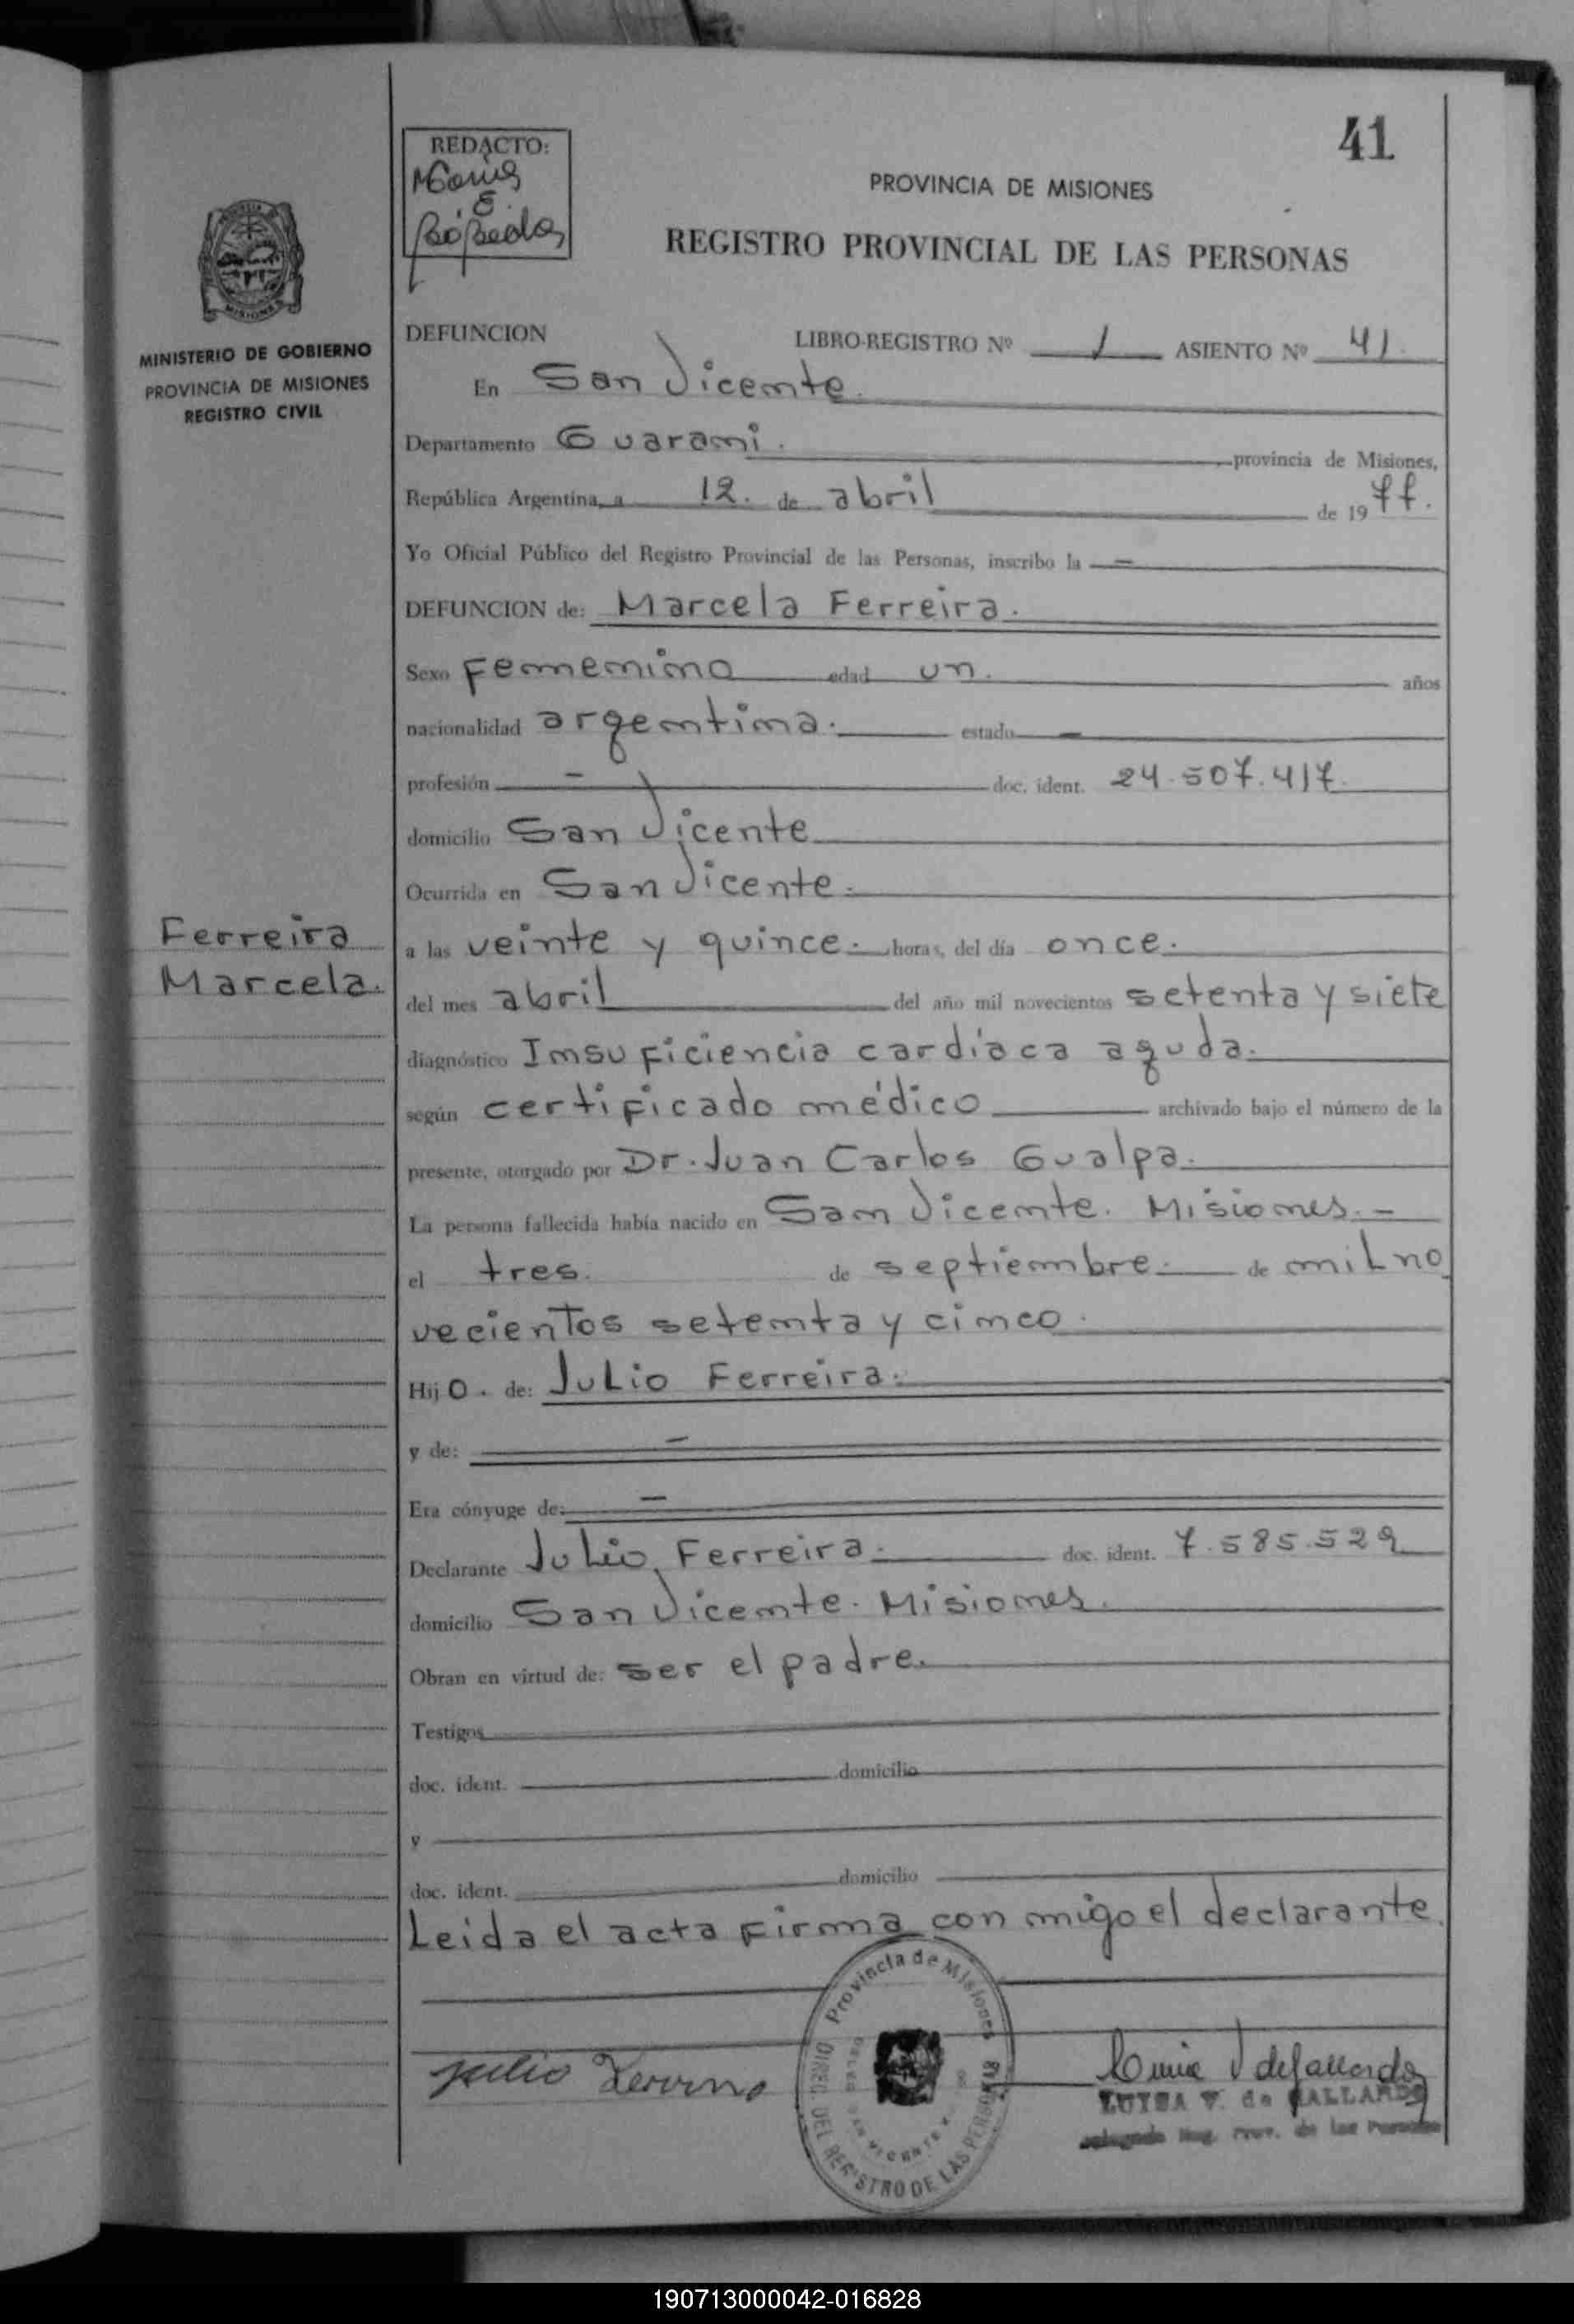 41
REDACTO:
PROVINCIA DE MISIONES
REGISTRO PROVINCIAL DE LAS PERSONAS
MINISTERIO DE GOBIERNO
PROVINCIA DE MISIONES
REGISTRO CIVIL
DEFUNCION LIBRO-REGISTRO Nº 1 ASIENTO Nº 41.
En San Vicente.
Departamento Guarani. provincia de Misiones,
República Argentina, a 12. de abril de 1977.
Yo Oficial Público del Registro Provincial de las Personas, inscribo la —
DEFUNCION de: Marcela Ferreira.
Sexo Femenino edad un. años
nacionalidad argentina. estado —
profesión — doc. ident. 24.507.417.
domicilio San Vicente
Ocurrida en San Vicente.
Ferreira
Marcela.
a las veinte y quince. horas, del día once.
del mes abril del año mil novecientos setenta y siete
diagnóstico Insuficiencia cardíaca aguda.
según certificado médico archivado bajo el número de la
presente, otorgado por Dr. Juan Carlos Gualpa.
La persona fallecida había nacido en San Vicente. Misiones. —
el tres. de septiembre. de mil no
vecientos setenta y cinco.
Hijo. de: Julio Ferreira.
y de: —
Era cónyuge de: —
Declarante Julio Ferreira. doc. ident. 7.585.529
domicilio San Vicente. Misiones.
Obran en virtud de: ser el padre.
Testigos
doc. ident. domicilio
y
doc. ident. domicilio
Leida el acta firma con migo el declarante.
Provincia de Misiones
DIREC. DEL REGISTRO DE LAS PERSONAS
Julio
LUISA V. de GALLARDO
Reg. Prov. de las Personas
190713000042-016828